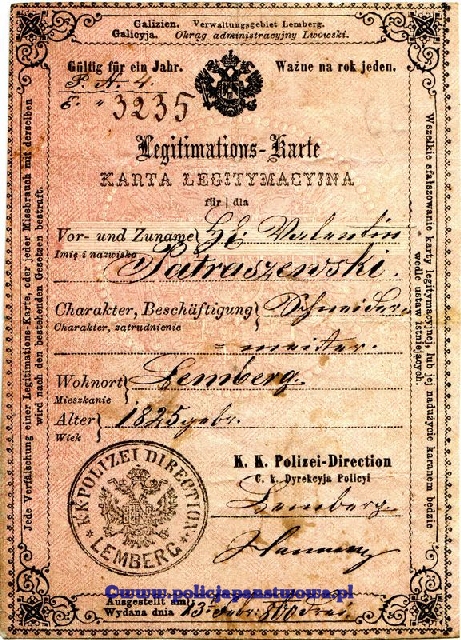 Galizien. Verwaltungsgebiet Lemberg.
Galicyja. Okrąg administracyjny Lwowski.
Gültig für ein Jahr. Ważne na rok jeden.
P. N. 4.
3235
Legitimations-Karte
KARTA LEGITYMACYJNA
für | dla
Vor- und Zuname Valentin
Imię i nazwisko Patraszewski.
Charakter, Beschäftigung Schneider
Charakter, zatrudnienie
meister.
Wohnort Lemberg.
Mieszkanie
Alter 1825 gebr.
Wiek
K. K. Polizei-Direction
C. k. Dyrekcyja Policyi
Lemberg
K.K. POLIZEI DIRECTION
LEMBERG
©www.policjapanstwowa.pl
Ausgestellt am
Wydana dnia 13
Jede Verfälschung einer Legitimations-Karte, oder jeder Missbrauch mit derselben
wird nach den bestehenden Gesetzen bestraft.
Wszelkie sfałszowanie karty legitymacyjnej lub jej nadużycie karanem będzie
wedle ustaw istniejących.